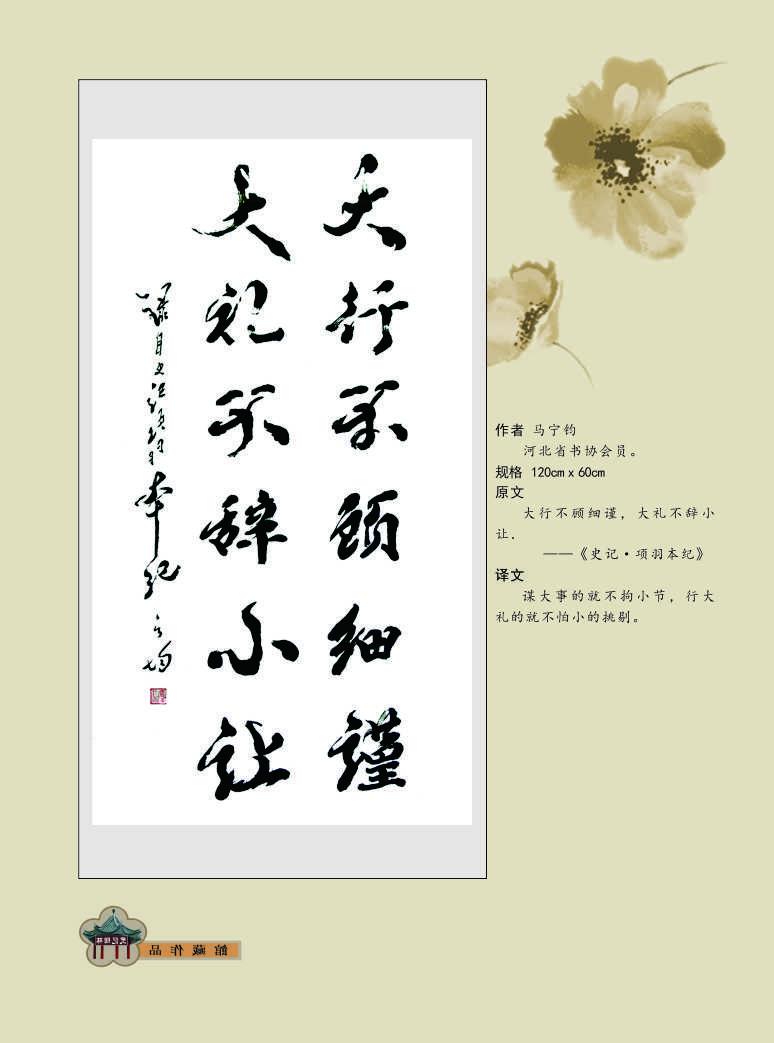 大行不顾细谨
大礼不辞小让
录自史记项羽本纪
宁钧
作者 马宁钧
河北省书协会员。
规格 120cm x 60cm
原文
大行不顾细谨，大礼不辞小
让．
——《史记·项羽本纪》
译文
谋大事的就不拘小节，行大
礼的就不怕小的挑剔。
館藏作品